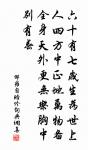 六十有七歲生爲世上
人四方中正地萬物備
全身天外更無樂胸中
別有春
邵雍自詠